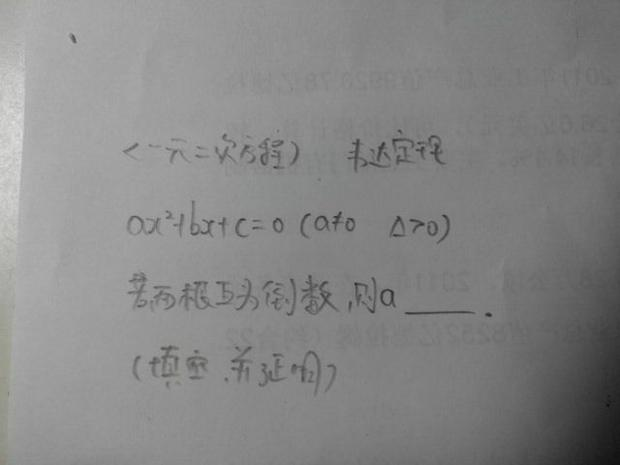 <一元二次方程) 韦达定理
ax²+bx+c=0 (a≠0 Δ>0)
若两根互为倒数,则a____.
(填空,并证明)